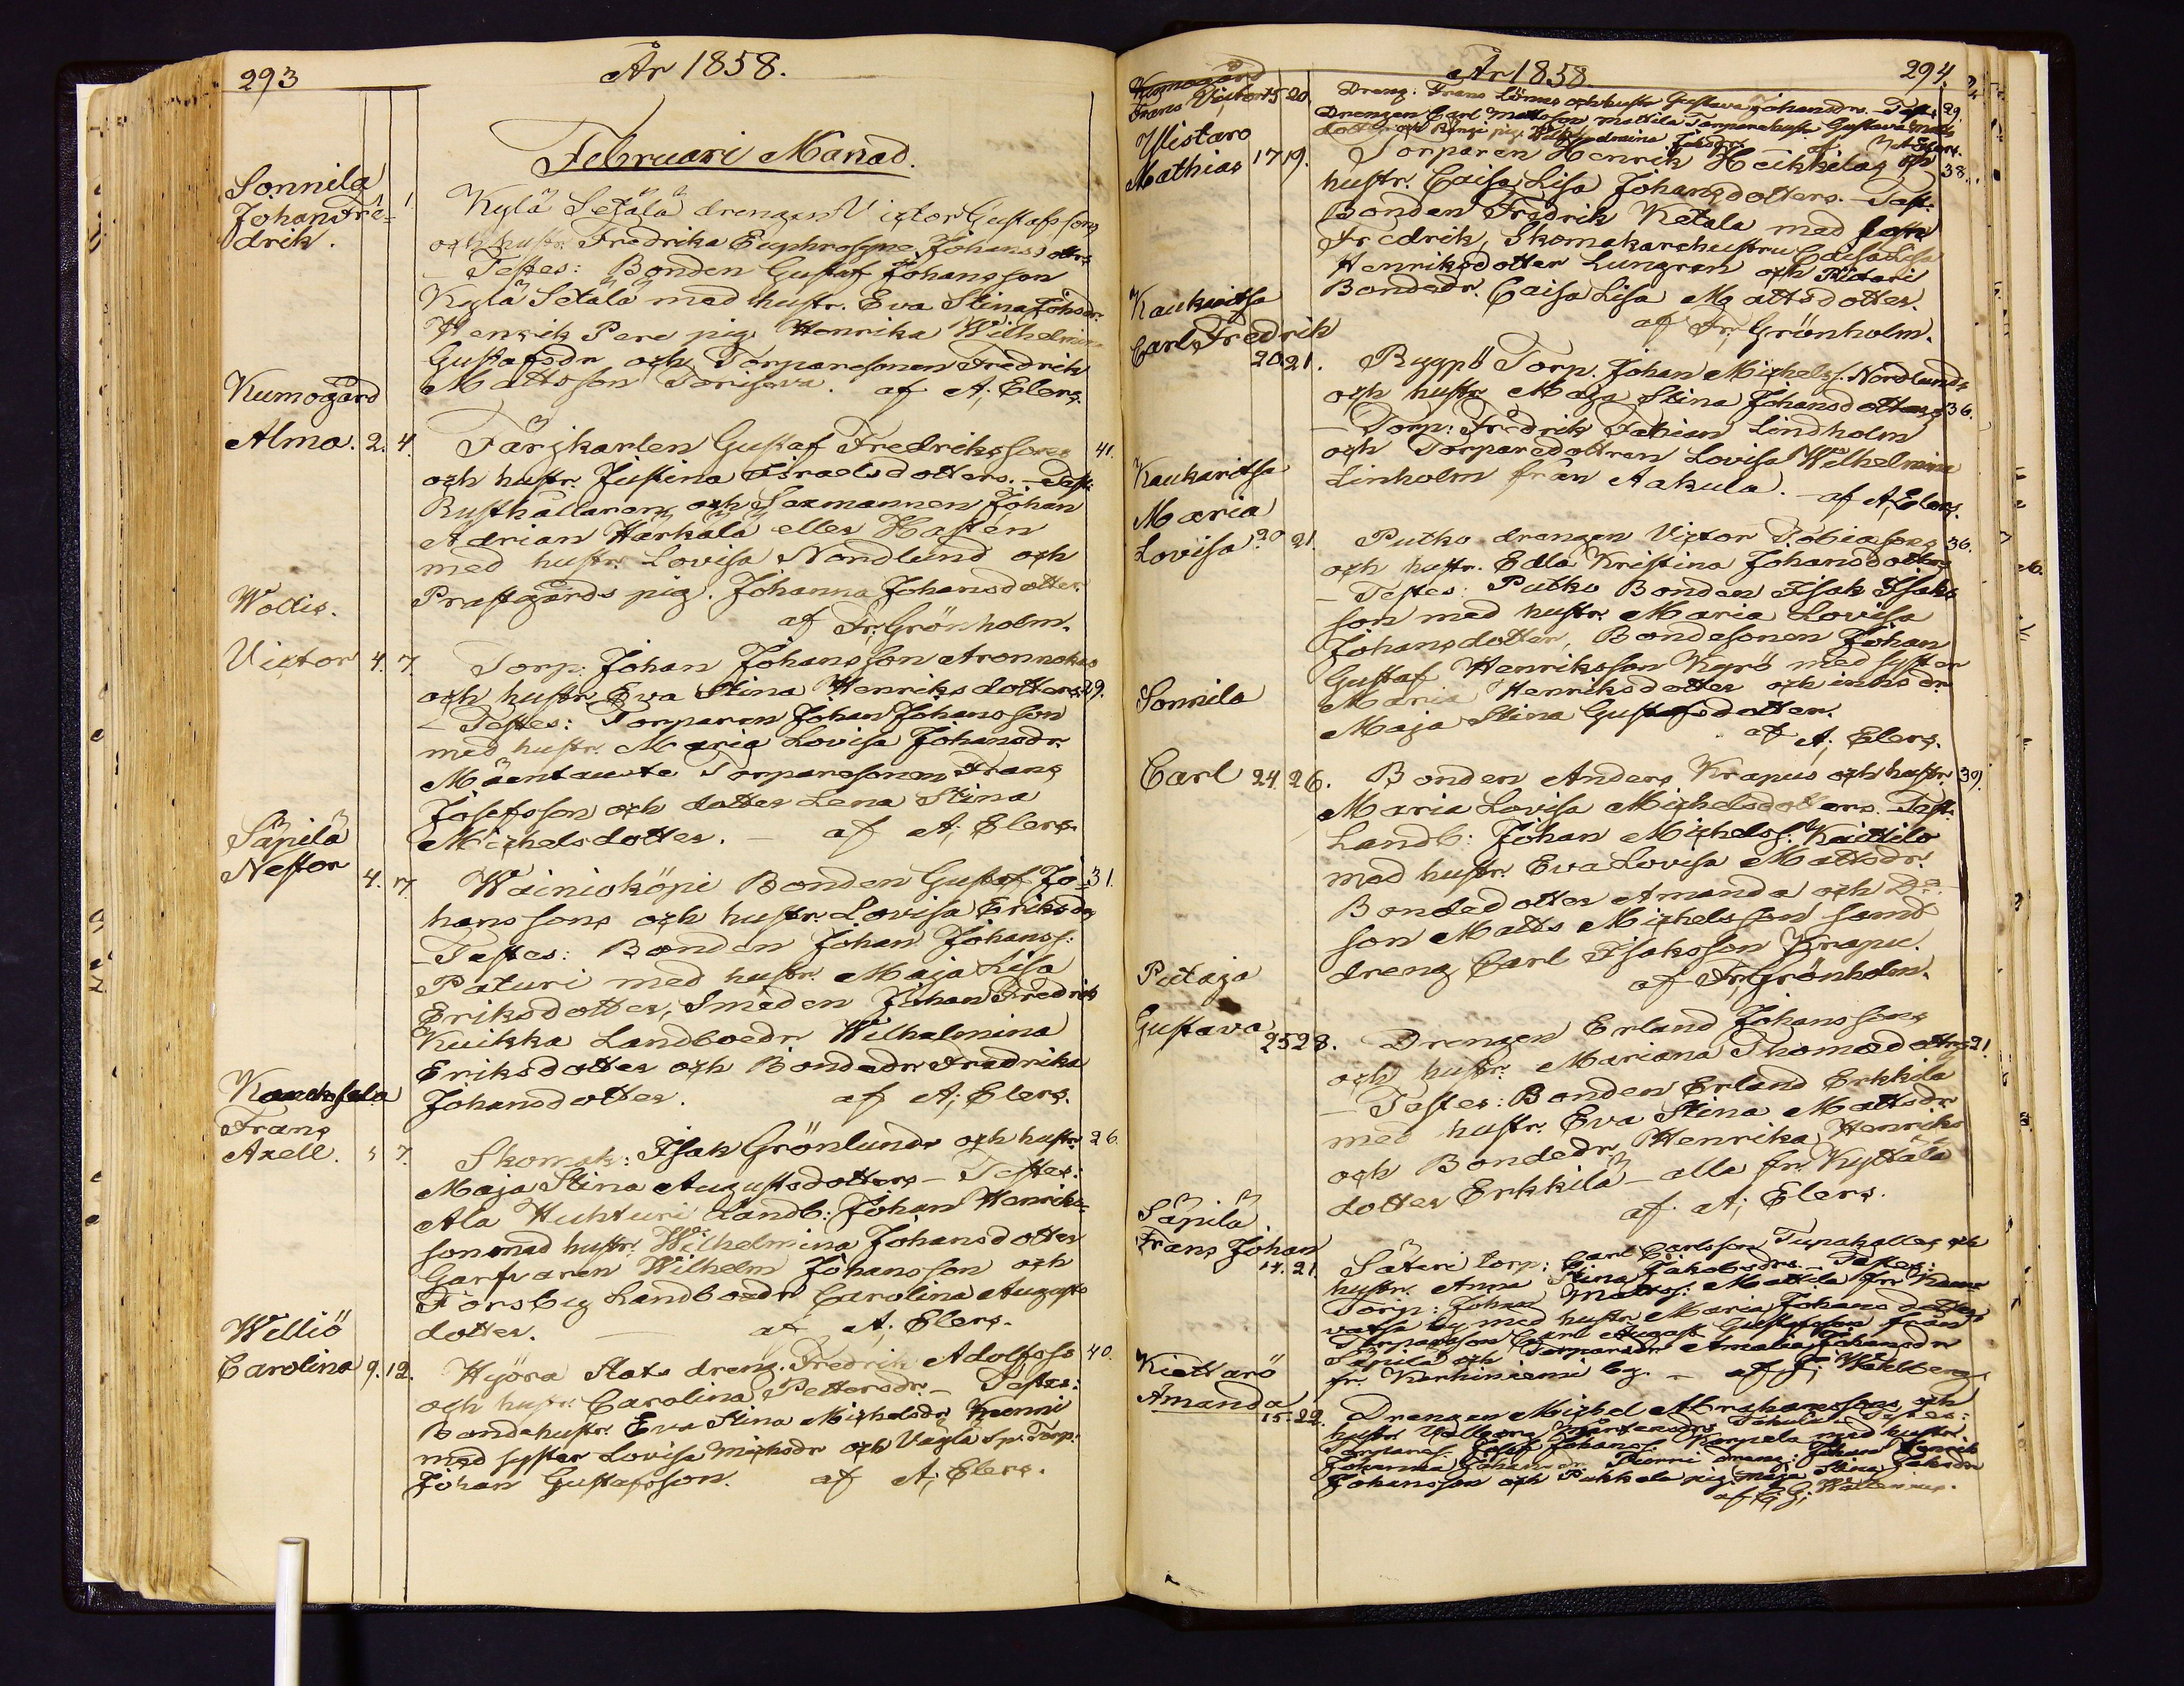 293
År 1858.
Februari Månad.
Sonnila
Johan Fre-
drik.
1.
Kylä Setälä drengen Victor Gustafssons
och hustr. Fredrika Euphrosyne Johansdotters
– Testes: Bonden Gustaf Johansson
Kylä Setälä med hustr. Eva Stina Johsdr.
Henrik Pere pig. Henrika Wilhelmina
Gustafsdr och Torparesonen Fredrik
Mattsson af A; Elers.
Kumogård
Alma. 2. 4.
Färjkarlen Gustaf Fredrikssons 41.
och hustr. Justina Israelsdotters. – Test:
Rusthållaren och Sexmannen Johan
Adrian Härkälä eller Hasten
med hustr. Lovisa Nordlund och
Prästgårds pig. Johanna Johansdotter.
af Fr; Grönholm.
Victor 4. 7.
Torp: Johan Johansson
och hustr. Eva Stina Henriksdotters. 29.
– Testes: Torparen Johan Johansson
med hustr. Maria Lovisa Johansdr.
Mäentausta Torparesonen Frans
Josefsson och dotter Lena Stina
Michelsdotter. – af A; Elers.
Säpilä
Nestor 4. 7.
Wainioköpi Bonden Gustaf Jo- 31.
hanssons och hustr. Lovisa Eriksdrs
– Testes: Bonden Johan Johanss:
Päturi med hustr. Maja Lisa
Eriksdotter, Smeden Johan Fredrik
Kuikka Landboedr Wilhelmina
Eriksdotter och Bondedr Fredrika
Johansdotter. af A; Elers.
Frans
Axell. 5 7.
Skomak: Isak Grönlunds och hustr. 26.
Maja Stina Augustsdotters – Testes:
Ala Huhturi Landb: Johan Henriks-
son med hustr. Wilhelmina Johansdotter
Garfvaren Wilhelm Johansson och
Forsby Landboedr Carolina Augusts
dotter. – af A. Elers.
Williö
Carolina 9. 12.
Hyöra Slots dreng. Fredrik Adolfsso 40.
och hustr. Carolina Pettersdr. – Testes:
Bondehustr. Eva Stina Michelsdr Kunni
med syster Lovisa Michsdr och Torp:
Johan Gustafsson. af A; Elers.
År 1858.
294.
Kumogård
Frans Victor 15 20.
Dreng: Frans och hustr Gustava Johansdrs. – Test. 29.
Drengen Carl Mattsson Mattila Torparehustr Gustava Matts
dotter och pig. af A Elers.
Ylistaro
Mathias 17 19.
Torparen Henrik Heikkilas och 38.
hustr. Caisa Lisa Johansdotters. – Test.
Bonden Fredrik Ketala med
Fredrik, Skomakarehustru Caisa Lisa
Henriksdotter Lungren och
Bondedr. Caisa Lisa Mattsdotter.
af Fr; Grönholm.
Kaukaritsa
Carl Fredrik
20 21.
Torp. Johan Michelss. Nordlunds
och hustr. Maja Stina Johansdotters 36.
– Torp: Fredrik Fabian Lindholm
och Torparedottren Lovisa Wilhelmina
Linholm från Aakula. – af A; Elers.
Kaukaritsa
Maria
Lovisa 20 21.
Putko drengen Victor Tobiassons 36.
och hustr. Edla Kristina Johansdotters
– Testes: Putko Bonden Isak Isaks
son med hustr. Maria Lovisa
Johansdotter, Bondesonen Johan
Gustaf Henriksson Kyrö med syster
Maria Henriksdotter och inhsdr
Maja Stina Gustafsdotter.
af A. Elers.
Sonnila
Carl 24. 26.
Bonden Anders Krapus och hustr. 39.
Maria Lovisa Michelsdotters. – Test.
Landb: Johan Michelss. Knittilo
med hustr. Eva Lovisa Mattsdr.
Bondedotter Amanda och Do
son Matts Michelsson samt
dreng Carl Isaksson Krapu.
af Fr; Grönholm.
Pietaja
Gustava 25 28.
Drengen Erland Johanssons
och hustr. Mariana Thomasdotters 21.
– Testes: Bonden Erland Erkkila
med hustr. Eva Stina Mattsdr
och Bondedr. Henrika Henriks
dotter Erkkilä – alla fr. Kyttälä
af A; Elers.
Säpilä
Frans Johan
14. 21.
Säteri torp: Carl Carlsson Tupakallas och
hustr. Anna Stina Jakobsdrs. – Testes:
Torp: Johan Mattss: Mattila fr.
by med hustr. Maria Johansdotter
Torpareson Carl August Gustafsson från
Säpilä och Torparedr Amalia Johansdr
fr. Karhiniemi by. – af J; Wahlberg.
Amanda
15. 22.
Drengen Michel Abrahamssons och
hustr. Testes:
Torpares. Josef Johanss. Karpela med hustr.
Johanna Johansdr. dreng: Johan Henrik
Johansson och Pukkala pig. Maja Stina Jaksdr